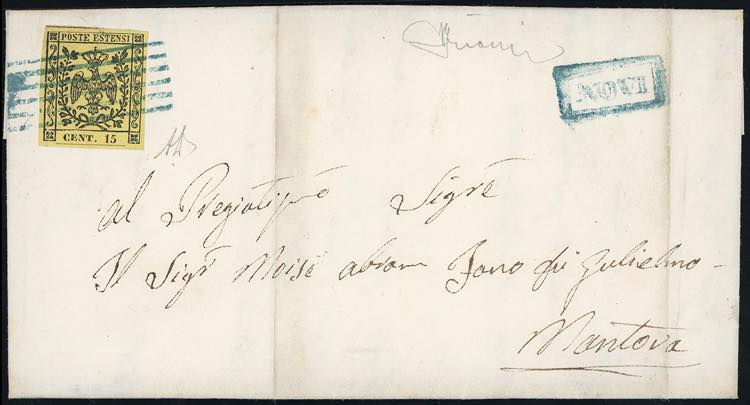 POSTE ESTENSI
CENT. 15
NOVI
Al Pregiatismo Sigre
Il Sigr Moise Abram Fano fu Zulielmo
Mantova